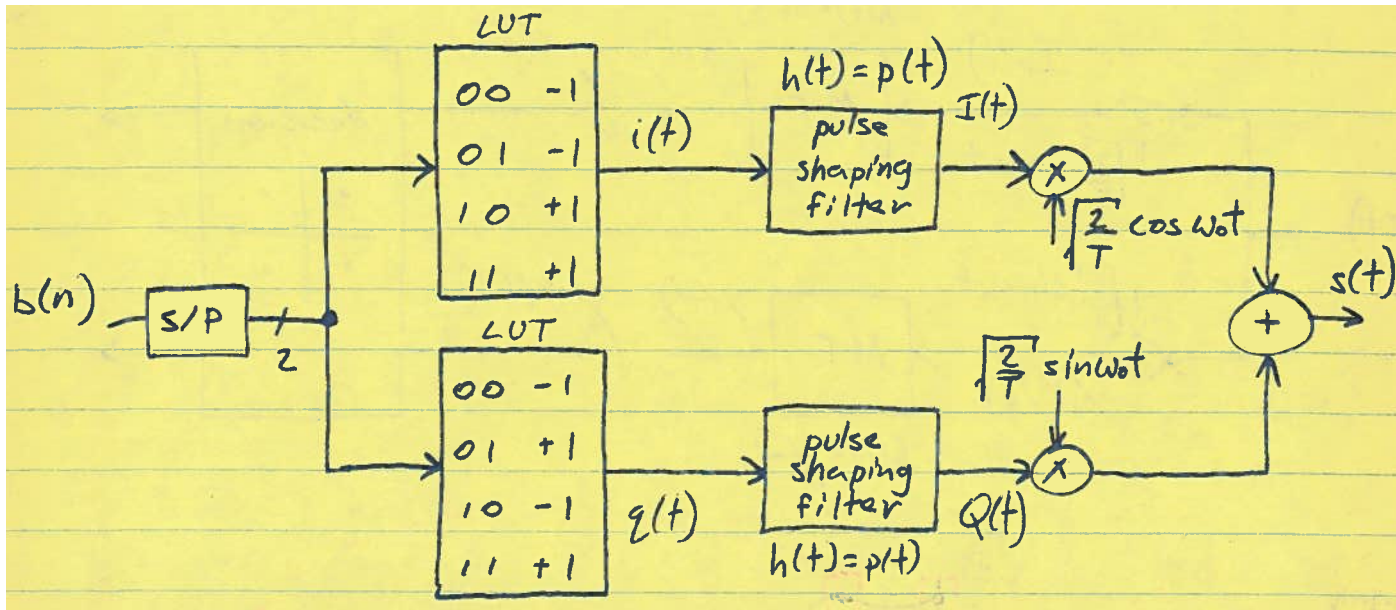 LUT
00 -1
01 -1
10 +1
11 +1
i(t)
h(t) = p(t)
pulse
shaping
filter
I(t)
x
√2/T cos ω₀t
b(n)
S/P
2
LUT
00 -1
01 +1
10 -1
11 +1
q(t)
pulse
shaping
filter
h(t) = p(t)
Q(t)
√2/T sin ω₀t
x
+
s(t)